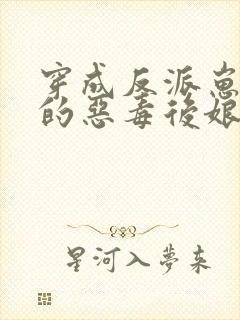 穿成反派崽
的惡毒後娘
星河入夢来